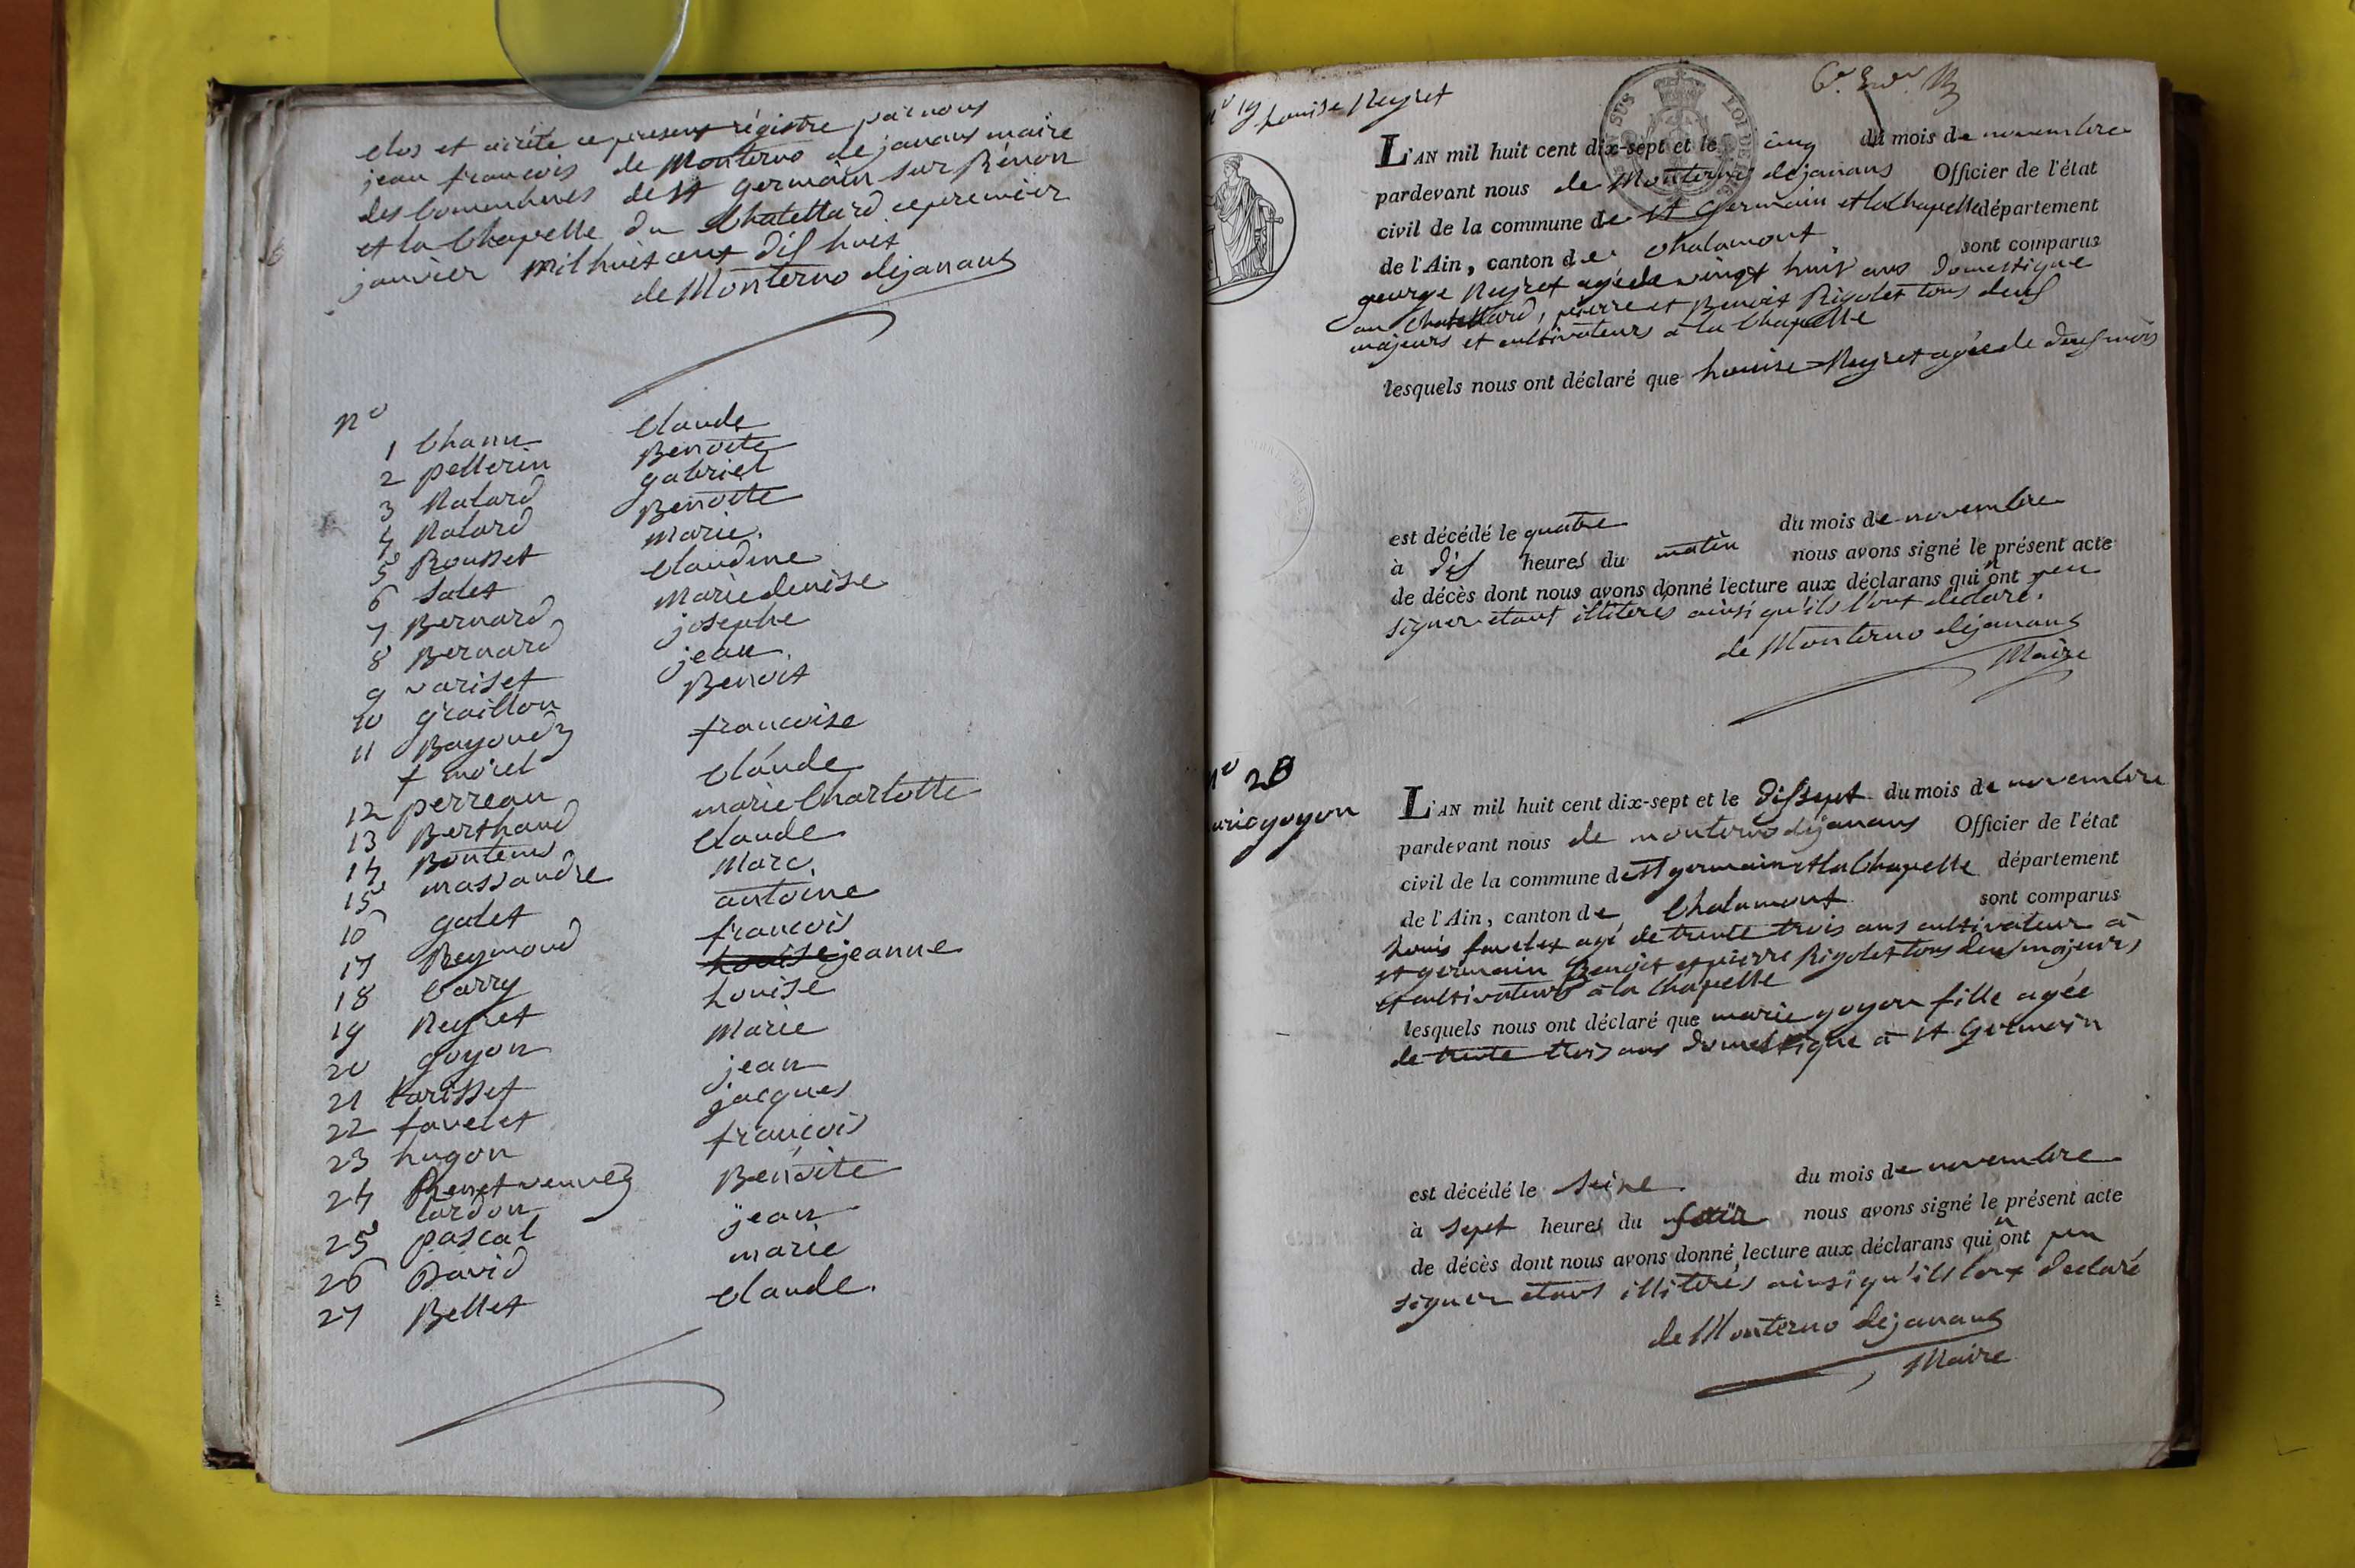 clos et arrêté ce present régistre par nous
jean francois de Monterno dejanans maire
des Communes de St germain sur Rénon
et la Chapelle du Chatellard ce premier
janvier mil huit cent dix huit
de Monterno dejanans
no
1 Chanu Claude
2 pellerin Benoite
3 Natard gabriel
4 Natard Benoite
5 Rousset Marie.
6 Salet Claudine
7 Bernard Marie denise
8 Bernard josephe
9 variset jean.
10 graillon Benoit
11 Bayoud
f morel francoise
12 perreau Claude
13 Berthaud marie Charlotte
14 Bontems Claude
15 massandre Marc
16 galet antoine
17 Reymond francois
18 Carry jeanne
19 Neyret Louise
20 goyon Marie
21 varisset jean
22 favelet jacques
23 hugon francois
24 veuve
Cardon Benoite
25 pascal jean
26 David marie
27 Bellet Claude.
no 19 Louise Neyret
L'AN mil huit cent dix-sept et le cinq du mois de novembre
pardevant nous de Monterno dejanans Officier de l'état
civil de la commune de St germain et la Chapelle département
de l'Ain, canton de Chalamont sont comparus
george Neyret agé de vingt huit ans Domestique
au Chatellard, pierre et Benoit Rigolet tous deux
majeurs et cultivateurs a la Chapelle
lesquels nous ont déclaré que Louise Neyret agée de deux mois
est décédé le quatre du mois de novembre
à dix heures du matin nous avons signé le présent acte
de décès dont nous avons donné lecture aux déclarans qui n'ont peu
signer etant illiterés ainsi qu'ils l'ont declaré.
de Monterno dejanans
Maire
no 20
marie goyon
L'AN mil huit cent dix-sept et le dixsept du mois de novembre
pardevant nous de monterno dejanans Officier de l'état
civil de la commune de St germain et la Chapelle département
de l'Ain, canton de Chalamont sont comparus
Louis favelet agé de trente trois ans cultivateur à
St germain Benoit et pierre Rigolet tous deux majeurs
et cultivateurs a la Chapelle
lesquels nous ont déclaré que marie goyon fille agée
de trente trois ans domestique à St Germain
est décédé le seize du mois de novembre
à sept heures du soir nous avons signé le présent acte
de décès dont nous avons donné lecture aux déclarans qui n'ont peu
signer etant illiterés ainsi qu'ils l'ont declaré
de Monterno dejanans
Maire